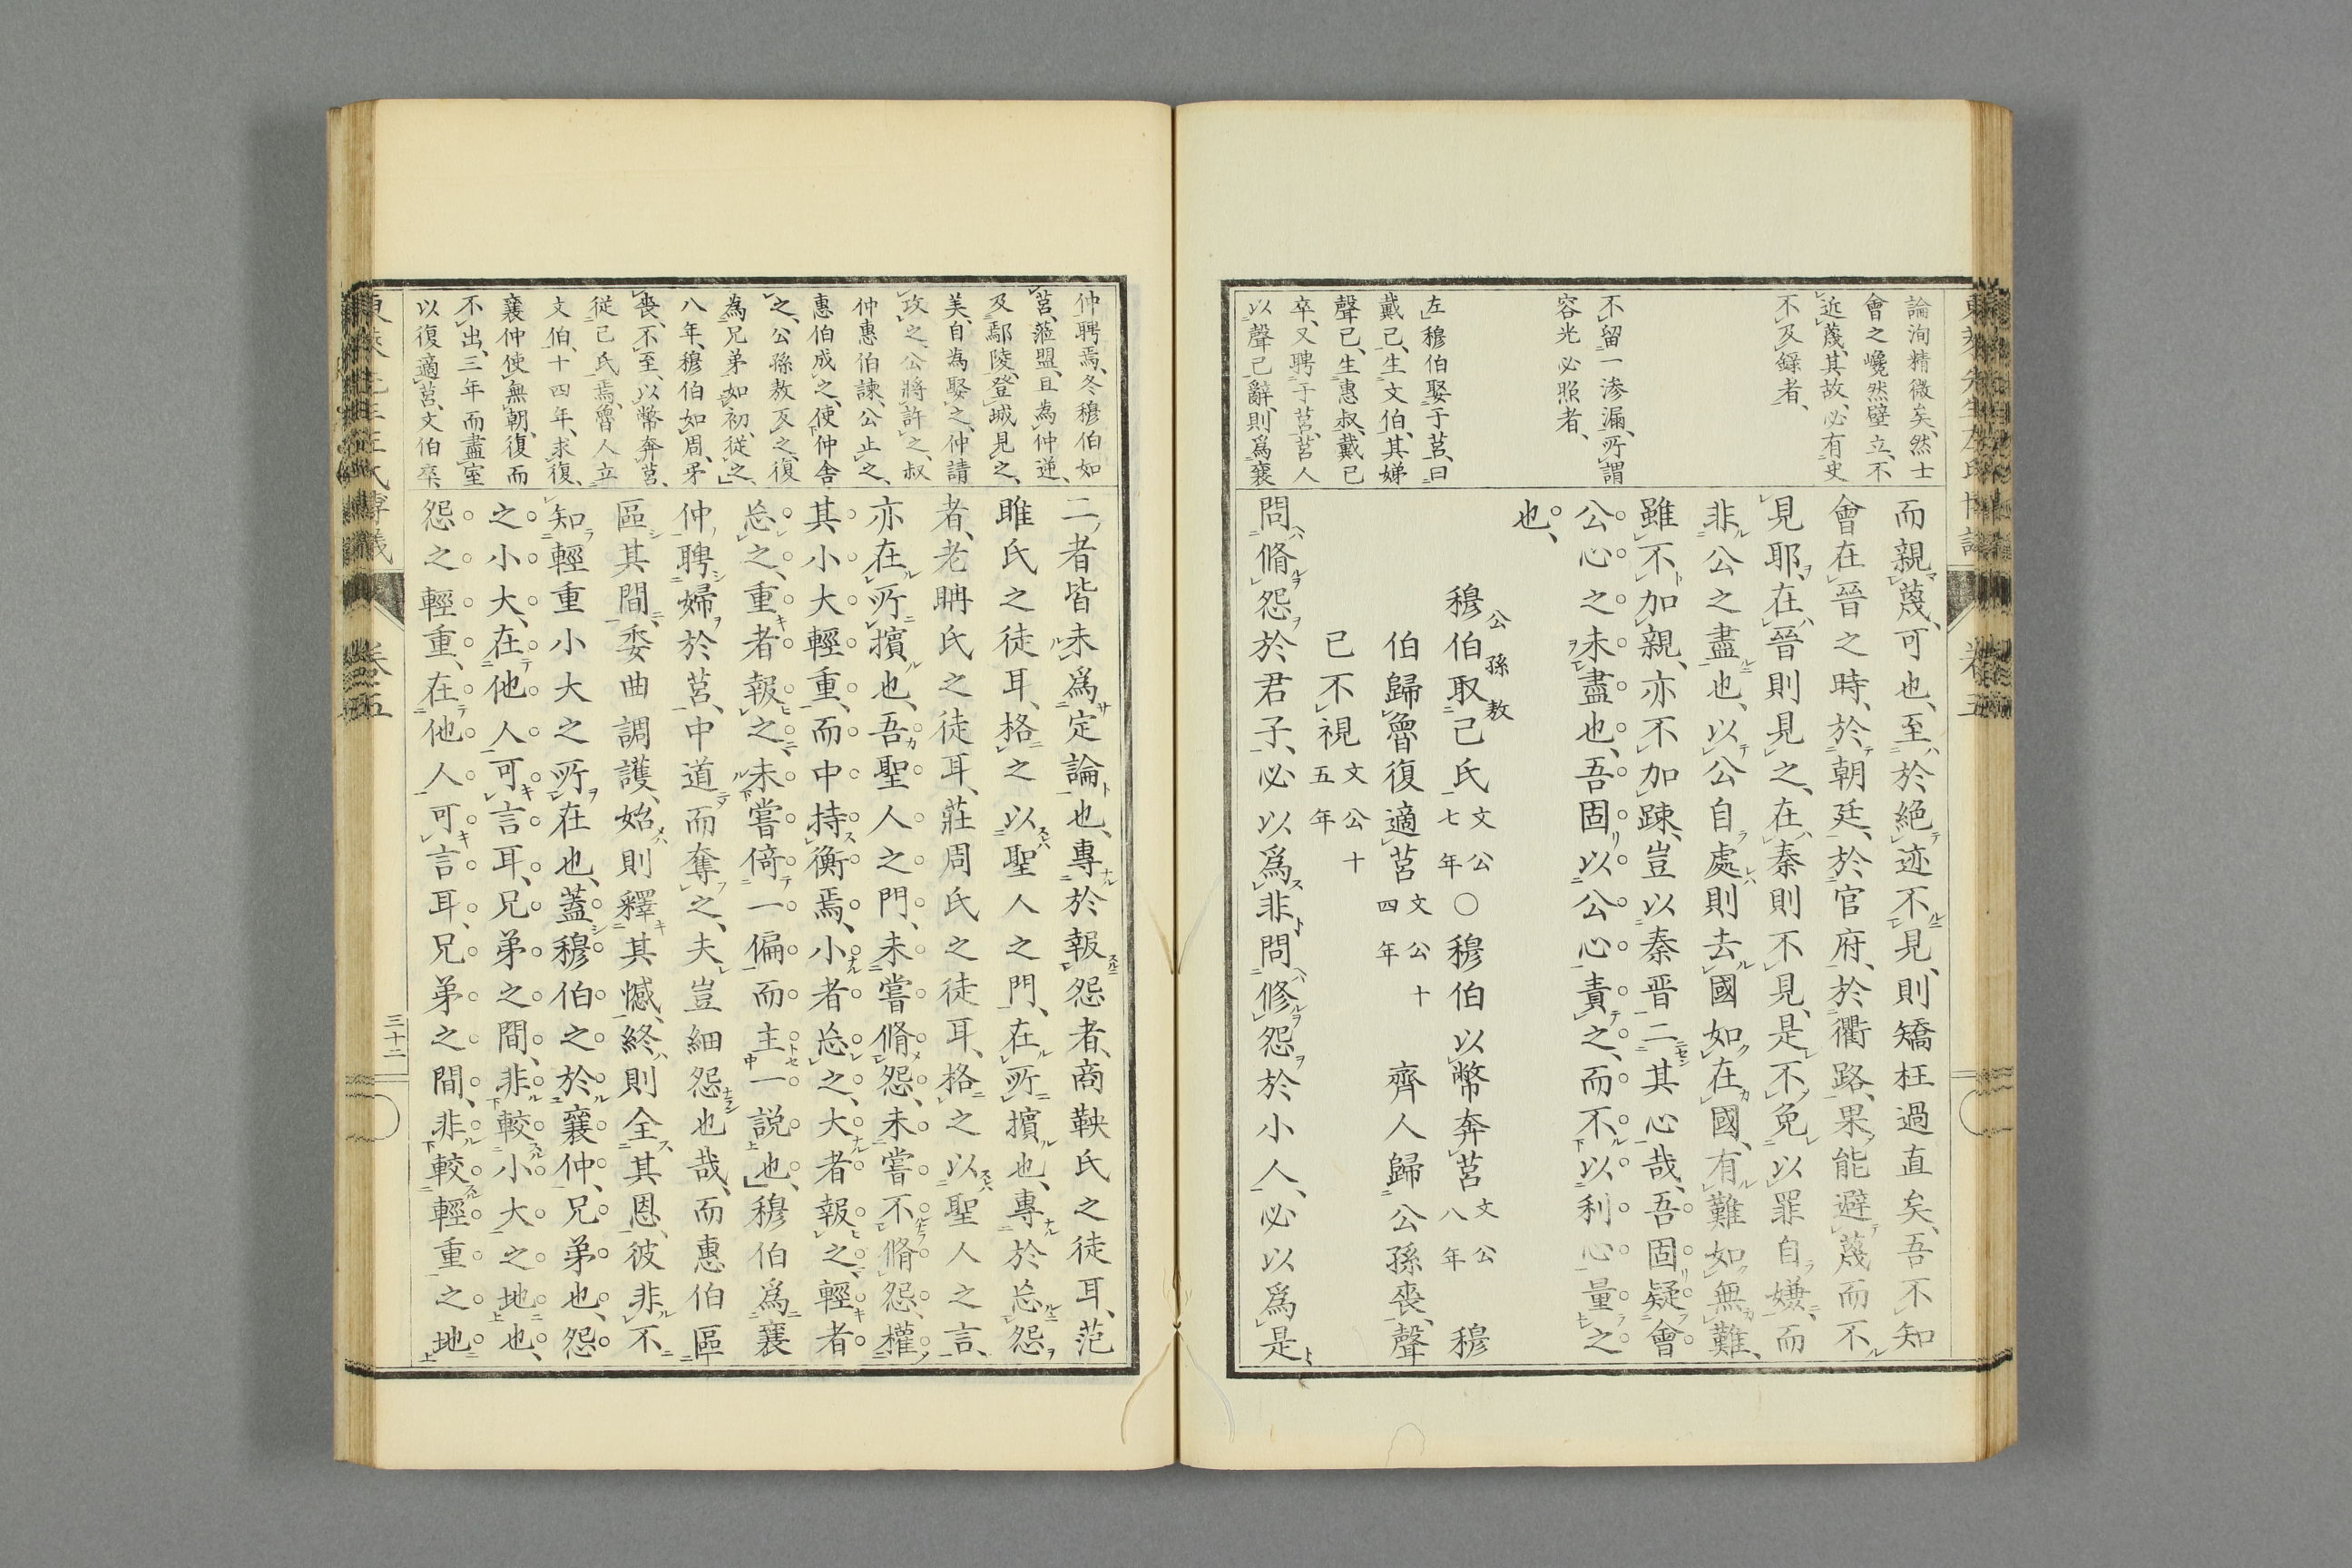 論洵精微矣、然士
會之巉然壁立、不
近蔑、其故必有史
不及録者、
不留一滲漏、所謂
容光必照者、
左穆伯娶于莒、曰
戴己、生文伯、其娣
聲己、生惠叔、戴己
卒、又聘于莒、莒人
以聲己辭、則爲襄
而親蔑、可也、至於絶迹不見、則矯枉過直矣、吾不知
會在晉之時、於朝廷、於官府、於衢路、果能避蔑而不
見耶、在晉則見之、在秦則不見、是不免以罪自嫌、而
非公之盡也、以公自處則去國如在國、有難如無難、
雖不加親、亦不加踈、豈以秦晋二其心哉、吾固疑會
公心之未盡也、吾固以公心責之、而不以利心量之
也、
穆伯取己氏文公七年○穆伯以幣奔莒文公八年 穆
公孫敖
伯歸魯復適莒文公十四年 齊人歸公孫喪、聲
己不視文公十五年
問脩怨於君子、必以爲非、問修怨於小人、必以爲是
東萊先生左氏博議
卷五
仲聘焉、冬穆伯如
莒、莅盟、且為仲逆、
及鄢陵、登城見之、
美、自為娶之、仲請
攻之、公將許之、叔
仲惠伯諫、公止之、
惠伯成之、使仲舎
之、公孫敖反之、復
為兄弟如初、從之、
八年、穆伯如周、弔
喪、不至、以幣奔莒、
從己氏焉、魯人立
文伯、十四年、求復、
襄仲使無朝、復而
不出、三年而盡室
以復適莒、文伯卒、
二者皆未爲定論也、專於報怨者、商鞅氏之徒耳、范
睢氏之徒耳、格之以聖人之門、在所擯也、專於忘怨
者、老耼氏之徒耳、莊周氏之徒耳、格之以聖人之言、
亦在所擯也、吾聖人之門、未嘗脩怨、未嘗不脩怨、權
其小大輕重、而中持衡焉、小者忘之、大者報之、輕者
忘之、重者報之、未嘗倚一偏而主一説也、穆伯爲襄
仲聘婦於莒、中道而奪之、夫豈細怨也哉、而惠伯區
區其間、委曲調護、始則釋其憾、終則全其恩、彼非不
知輕重小大之所在也、蓋穆伯之於襄仲、兄弟也、怨
之小大、在他人可言耳、兄弟之間、非較小大之地也、
怨之輕重、在他人可言耳、兄弟之間、非較輕重之地
東萊先生左氏博議
卷五
三十二